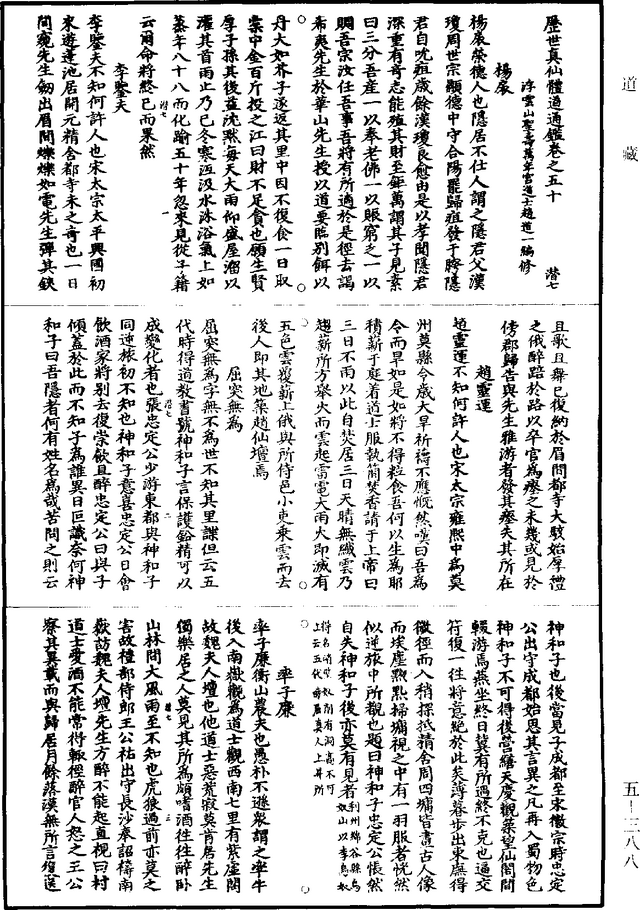 道藏
五—三八八
歷世真仙體道通鑑卷之五十 潛七
浮雲山聖壽萬年宮道士趙道一編修
楊展
楊展榮德人也隱居不仕人謂之隱君父漢
瓊周世宗顯德中守合陽罷歸疽發于胯隱
君自吮疽歲餘漢瓊良愈由是以孝聞隱君
深重有奇志能殖其財至鉅萬謂其子見素
曰三分吾產一以奉老佛一以賑窮乏一以
賙吾宗汝任吾事吾將有所適於是徑去謁
希夷先生於華山先生授以道要臨別餌以
丹大如芥子遂返其里中因不復食一日取
橐中金百斤投之江曰財不足貪也願生賢
厚子孫其後益沈默每天大雨仰盛屋溜以
灌其首雨止乃已冬寒沍汲水沐浴氣上如
蒸年八十八而化踰五十年忽來見從子籍
云爾命將終已而果然
李鑒夫
李鑒夫不知何許人也宋太宗太平興國初
來遊蓬池居開元精舍都寺未之奇也一日
間窺先生劒出眉間爍爍如電先生彈其鋏
且歌且舞已復納於眉間都寺大駭始厚禮
之俄醉踣於路以卒官為瘞之未幾或見於
傍郡歸告與先生雅游者發其瘞失其所在
趙靈運
趙靈運不知何許人也宋太宗雍熙中為莫
州莫縣令歲大旱祈禱不應慨然嘆曰吾為
令而旱如是如將不得粒食吾何以生為耶
積薪于庭着道士服執簡焚香請于上帝曰
三日不雨以此自焚居三日天晴無纖雲乃
趨薪所方舉火而雲起雷電大雨火即滅有
五色雲覆薪上俄與所侍邑小吏乘雲而去
後人即其地築趙仙壇焉
屈突無為
屈突無為字無不為世不知其里諜但云五
代時得道教書號神和子言保護鉛精可以
成變化者也張忠定公少游東都與神和子
同逆旅初不知也神和子意喜忠定公日會
飲酒家將別去復崇飲且醉忠定公曰與子
傾蓋於此而不知子為誰異日叵識奈何神
和子曰吾隱者何有姓名為哉苦問之則云
神和子也後當見子成都至宋徽宗時忠定
公出守成都始思其言異之凡再入蜀物色
神和子不可得後營繕天慶觀築望仙閣間
輟游焉燕坐終日冀有所遇終不克也逼交
符復一往將意絕於此矣薄暮步出東廡得
微徑而入稍探抵精舍周四墉皆畫古人像
而埃塵黕黕掃壖視之中有一羽服者恍然
似逆旅中所覩也題曰神和子忠定公悵然
自失神和子後亦莫有見者
率子廉
率子廉衡山農夫也愚朴不遜衆謂之率牛
後入南嶽觀為道士觀西南七里有紫虛閣
故魏夫人壇也他道士惡荒寂莫肯居先生
獨樂居之人莫見其所為頗嗜酒往往醉卧
山林間大風雨至不知也虎狼過前亦莫之
害故禮部侍郎王公祐出守長沙奉詔禱南
嶽訪魏夫人壇先生方醉不能起直視曰村
道士愛酒不能常得輒徑醉官人恕之王公
察其異載而與歸居月餘落漠無所言復送